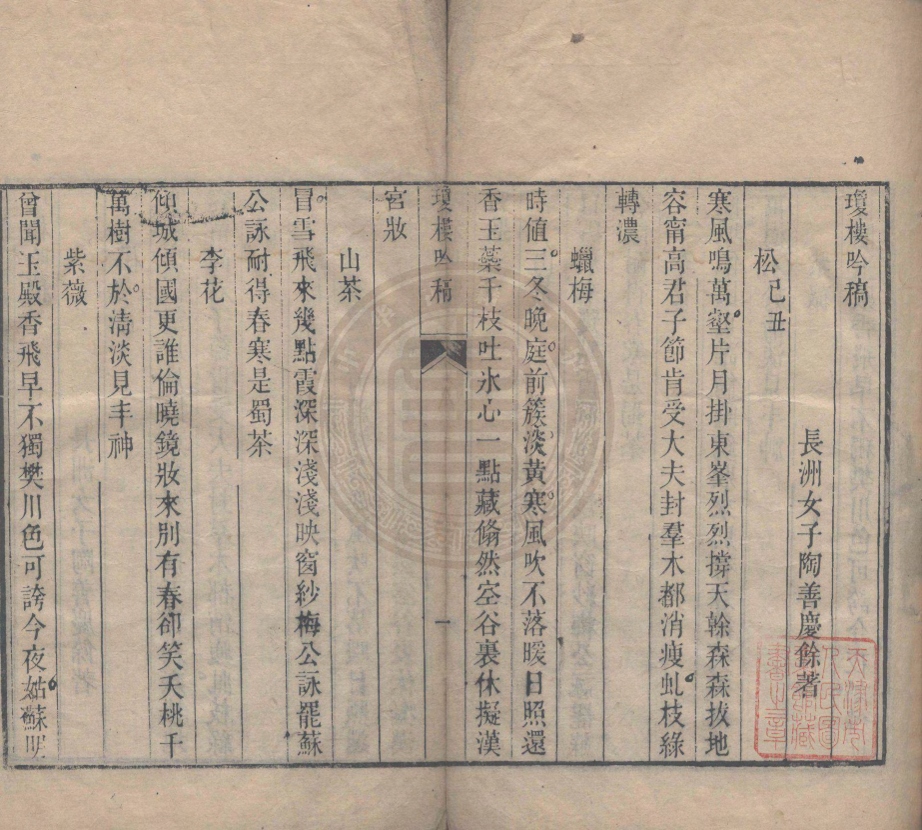 瓊樓吟稿
長洲女子陶善慶餘著
松己丑
寒風鳴萬壑片月掛東峯烈烈撐天榦森森拔地
容甯高君子節肯受大夫封羣木都消瘦虬枝綠
轉濃
蠟梅
時值三冬晚庭前簇淡黃寒風吹不落暖日照還
香玉蘂千枝吐氷心一點藏翛然空谷裏休擬漢
瓊樓吟稿
一
宮妝
山茶
冒雪飛來幾點霞深深淺淺映窗紗梅公詠罷蘇
公詠耐得春寒是蜀茶
李花
傾城傾國更誰倫曉鏡妝來別有春卻笑夭桃千
萬樹不於淸淡見丰神
紫薇
曾聞玉殿香飛早不獨樊川色可誇今夜姑蘇明
天津市
人民圖
書館藏
書之章